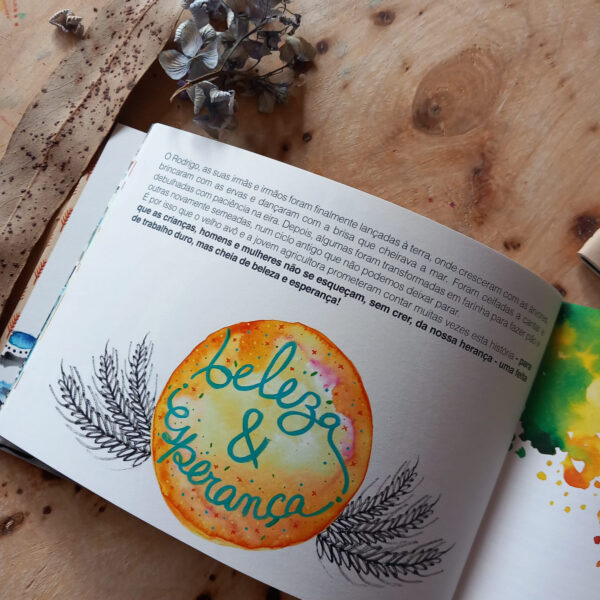 O Rodrigo, as suas irmãs e irmãos foram finalmente lançadas à terra, onde cresceram com as árvores,
brincaram com as ervas e dançaram com a brisa que cheirava a mar. Foram ceifadas a cantar e
debulhadas com paciência na eira. Depois, algumas foram transformadas em farinha para fazer pão e
outras novamente semeadas, num ciclo antigo que não podemos deixar parar.
É por isso que o velho avô e a jovem agricultora prometeram contar muitas vezes esta história - para
que as crianças, homens e mulheres não se esqueçam, sem crer, da nossa herança - uma feita
de trabalho duro, mas cheia de beleza e esperança!
beleza
&
esperança